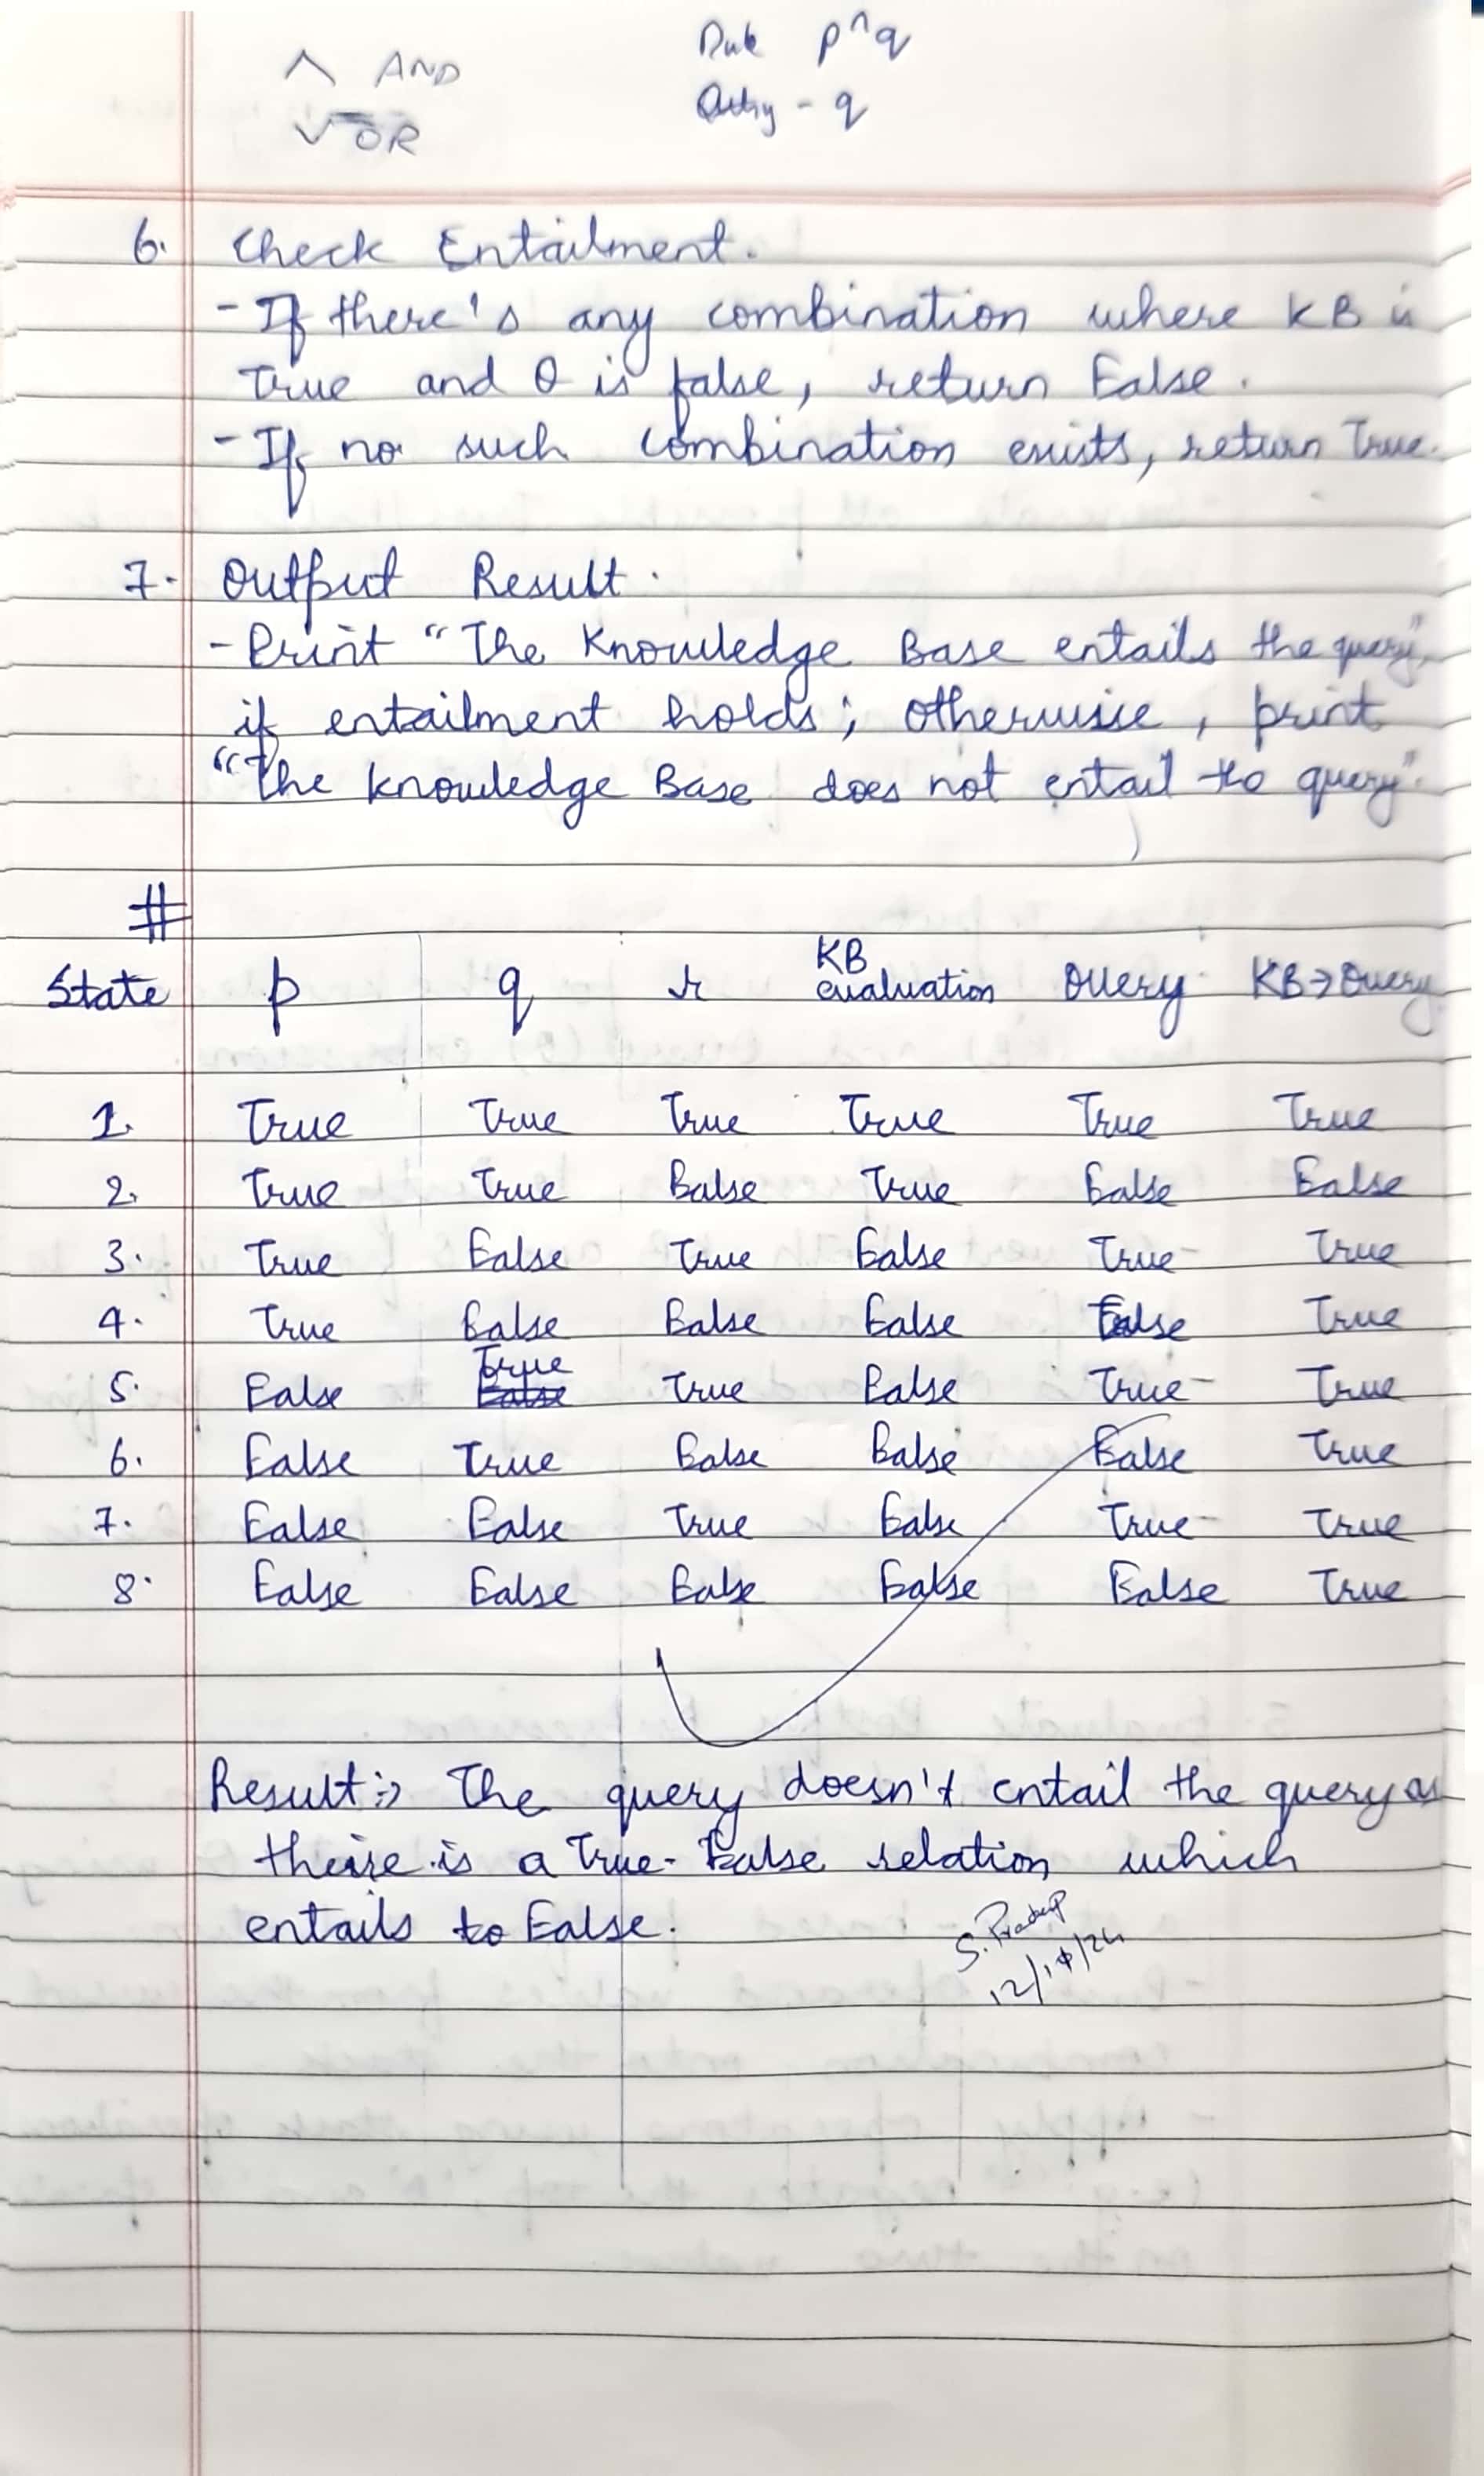 ∧ AND
∨ OR
Rule p^q
Query - q
6. Check Entailment.
- If there's any combination where KB is
True and Q is false, return False.
- If no such combination exists, return True.
7. Output Result.
- Print "The Knowledge Base entails the query",
if entailment holds; otherwise, print
"The knowledge Base does not entail the query".
#
State p q r KB evaluation Query KB→Query
1. True True True True True True
2. True True False True False False
3. True False True False True True
4. True False False False False True
5. False True True False True True
6. False True False False False True
7. False False True False True True
8. False False False False False True
Result:→ The query doesn't entail the query as
there is a True-False relation which
entails to False.
S. Pradeep